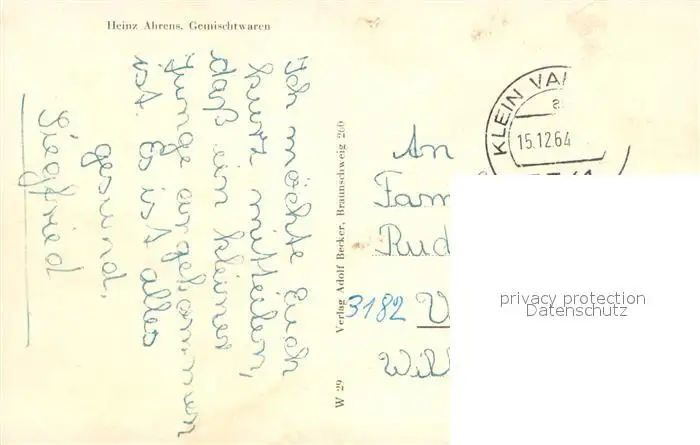 Heinz Ahrens, Gemischtwaren
Ich möchte Euch
kurz mitteilen,
daß ein kleiner
Junge angekommen
ist. Es ist alles
gesund.
Siegfried
W 29 Verlag Adolf Becker, Braunschweig 260
KLEIN VA
a
15.12.64
An
Fam
Rud
3182 V
Wil
privacy protection
Datenschutz